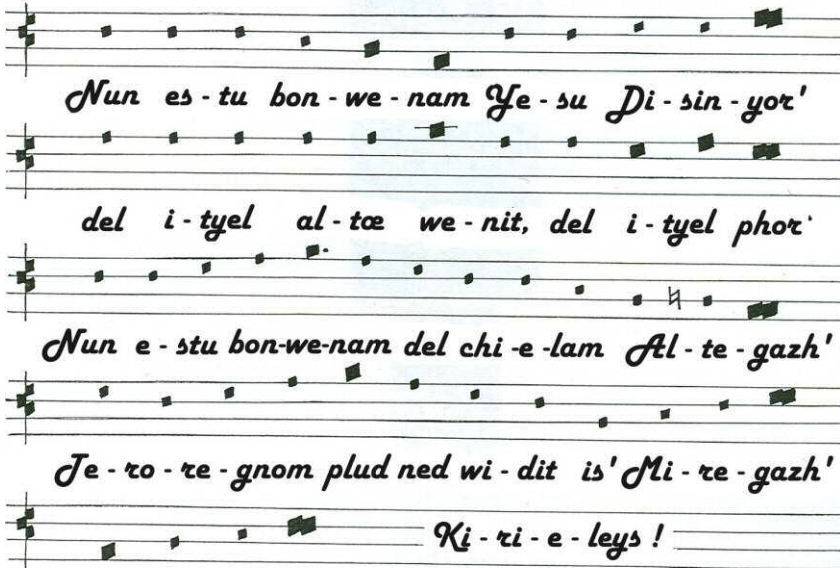 Nun es - tu bon - we - nam Ye - su Di - sin - yor'
del i - tyel al - tœ we - nit, del i - tyel phor'
Nun e - stu bon-we-nam del chi -e -lam Al - te - gazh'
Te - ro - re - gnom plud ned wi - dit is' Mi - re - gazh'
Ki - ri - e - leys !